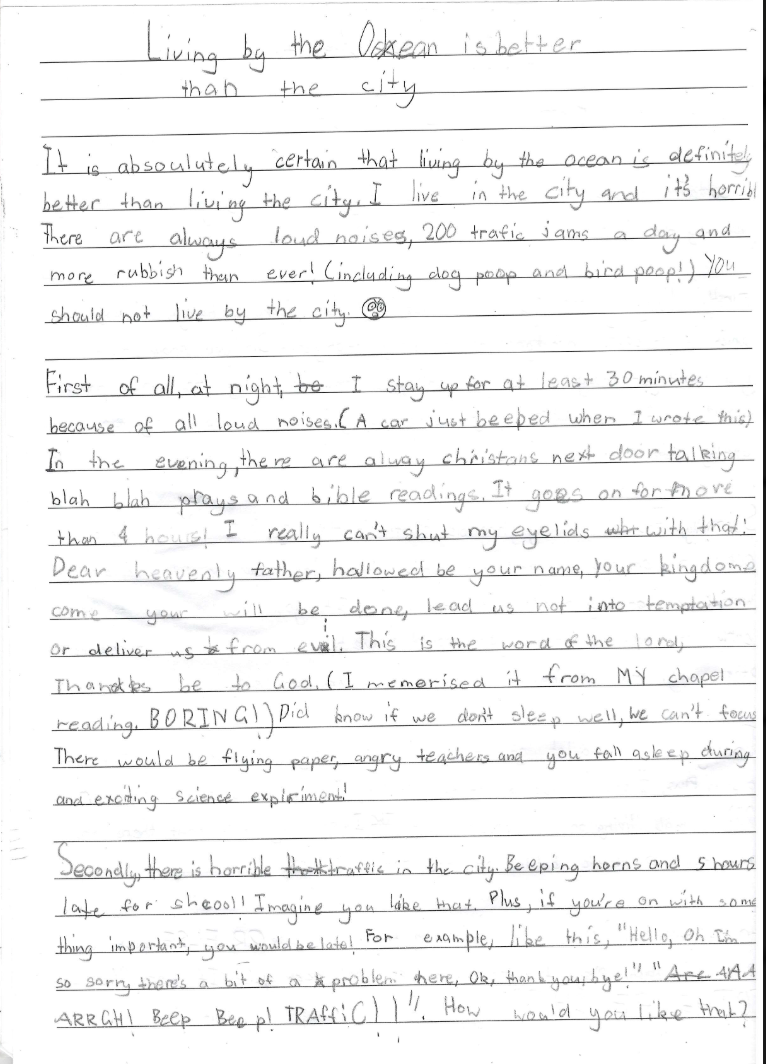 Living by the Ockean is better
than the city
It is absoulutely certain that living by the ocean is definitely
better than living the city. I live in the city and it's horribl
There are always loud noises, 200 trafic jams a day and
more rubbish than ever! (including dog poop and bird poop!) You
should not live by the city.
First of all, at night, be I stay up for at least 30 minutes
because of all loud noises. (A car just beeped when I wrote this)
In the evening, there are alway christans next door talking
blah blah prays and bible readings. It goes on for more
than 4 hours! I really can't shut my eyelids with that:
Dear heavenly father, hallowed be your name, your kingdome
come your will be done, lead us not into temptation
or deliver us from evil. This is the word of the lord,
Thankes be to God. (I memerised it from MY chapel
reading. BORING!) Did know if we don't sleep well, we can't focus
There would be flying paper, angry teachers and you fall asleep during
and exciting science expiriment!
Secondly, there is horrible traffic in the city. Beeping horns and 5 hours
late for shcool! Imagine you like that. Plus, if you're on with some
thing important, you would be late! For example, like this, "Hello, Oh I'm
so sorry there's a bit of a problem here, Ok, thank you, bye!" "Are AAA
ARRGH! Beep Beep! TRAffiC))". How would you like that?